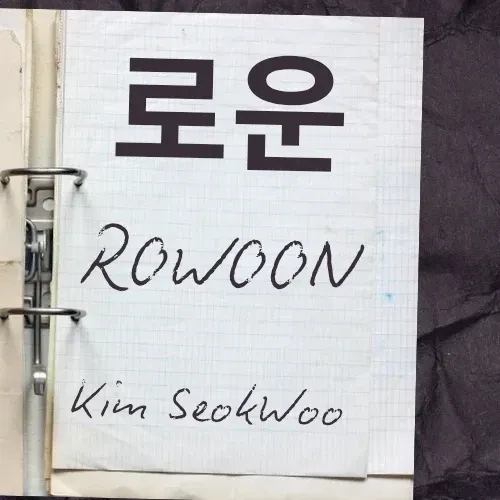 로운
ROWOON
Kim SeokWoo